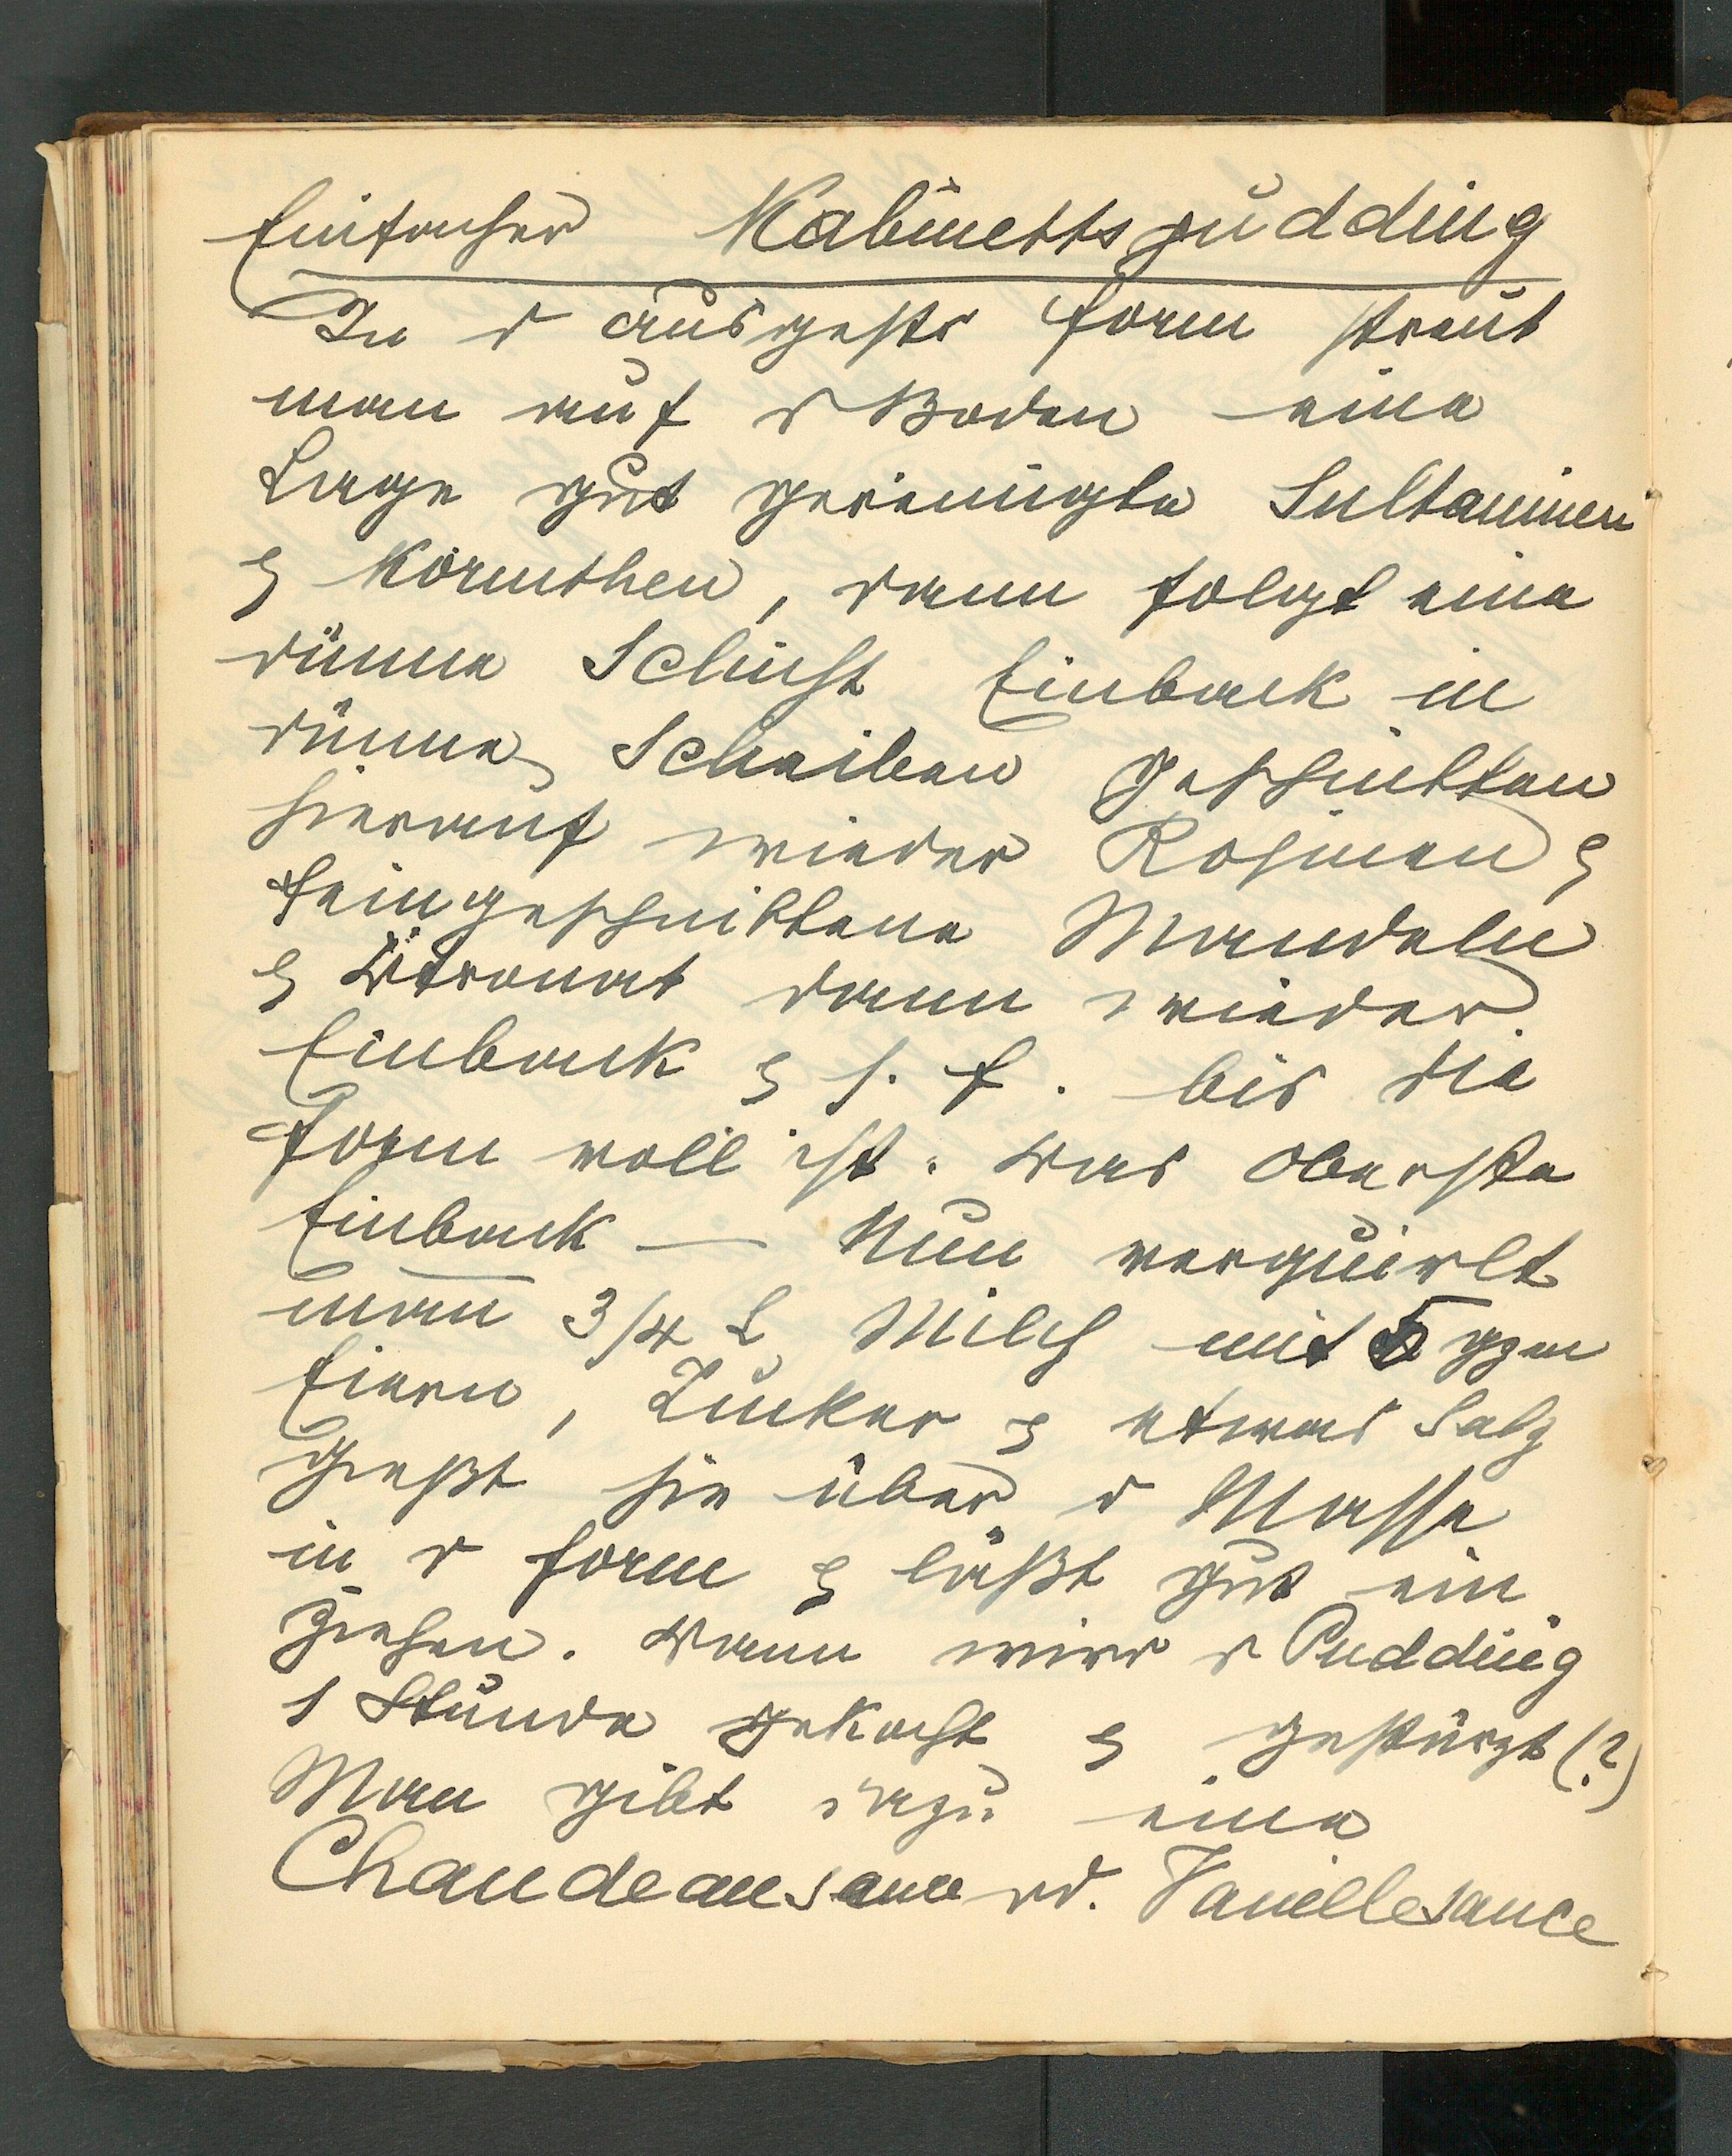 Einfacher Kabinettspudding
In d ausgestr Form streut
man auf d Boden eine
Lage gut gereinigte Sultaninen
& Korinthen, dann folgt eine
dünne Schicht Einback in
dünne Scheiben geschnitten
hierauf wieder Rosinen &
feingeschnittene Mandeln
& Zitronat dann wieder
Einback & s. f. bis die
Form voll ist. Das oberste
Einback — Nun verquirlt
man 3/4 L Milch mit 5 gzen
Eiern, Zucker & etwas Salz
gießt sie über d Masse
in d Form & läßt gut ein
ziehen. Dann wird d Pudding
1 Stunde gekocht & gestürzt (?)
Man gibt dazu eine
Chaudeausauce od. Vanillesauce